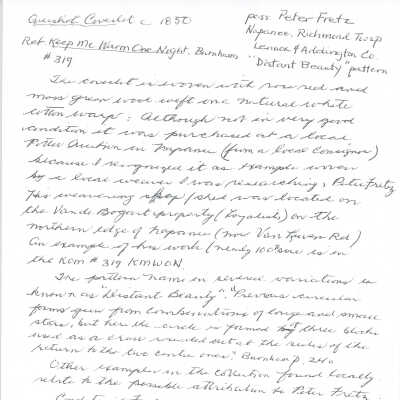 Overshot Coverlet c 1850
poss Peter Fretz
Napanee, Richmond Twsp
Lennox & Addington Co
"Distant Beauty" pattern
Ref Keep Me Warm One Night. Burnham
# 319
The coverlet is woven with rose red and
moss green wool weft on a natural white
cotton warp. Although not in very good
condition it was purchased at a local
Potter Auction in Napanee (from a local consignor)
because I recognized it as example woven
by a local weaver I was researching, Peter Fretz
His weavering shop/shed was located on
the Vande Bogart property (Loyalists) on the
northern edge of Napanee (now Van Luven Rd)
An example of his work (nearly 100% sure) is in
the ROM # 319 KMWON.
The pattern name in several variations is
known as "Distant Beauty". "Previous circular
forms grew from combinations of large and small
stars, but here the circle is formed by three blocks
used as a cross at the sides of the
return to the two centre ones." Burnham p. 240
Other examples in the collection found locally
relate to the possible attribution to Peter Fretz.